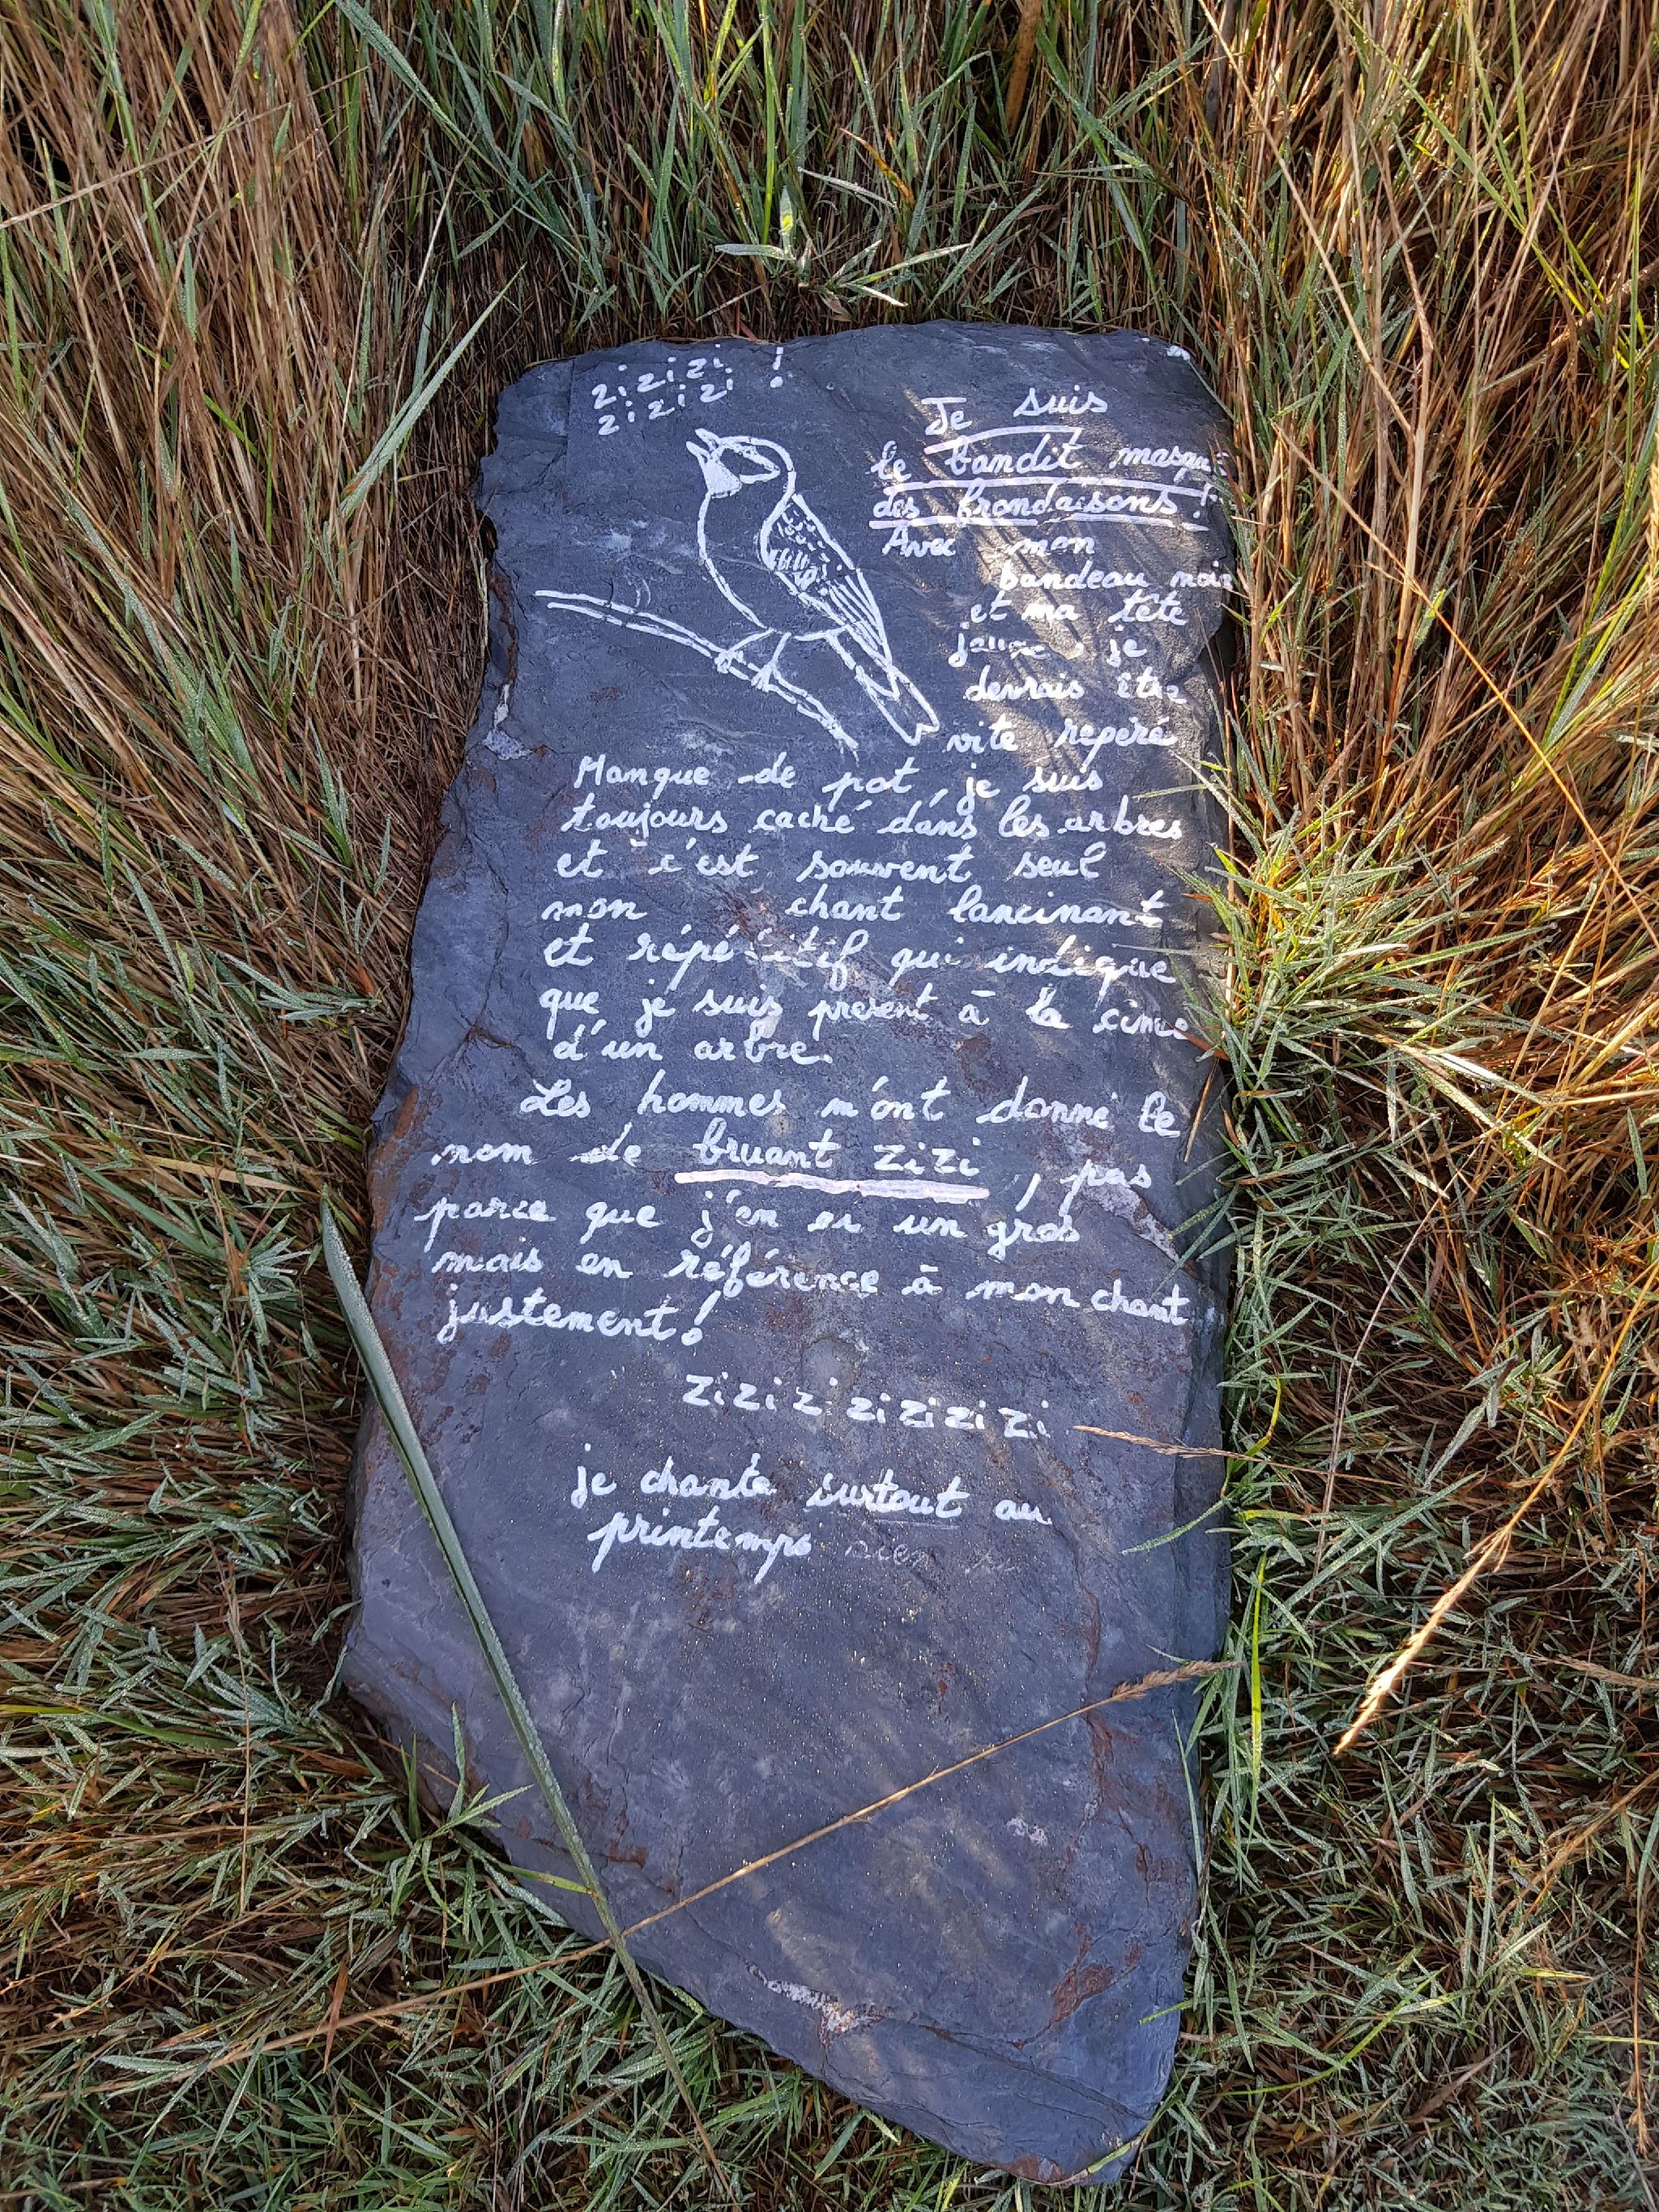 zizizi !
zizizi
Je suis
le bandit masqué
des frondaisons !
Avec mon
bandeau noir
et ma tête
jaune je
devrais être
vite repéré
Manque de pot, je suis
toujours caché dans les arbres
et c'est souvent seul
mon chant lancinant
et répétitif qui indique
que je suis present à la cime
d'un arbre.
Les hommes m'ont donné le
nom de bruant zizi, pas
parce que j'en ai un gros
mais en référence à mon chant
justement !
zizizi zizizizi
je chante surtout au
printemps